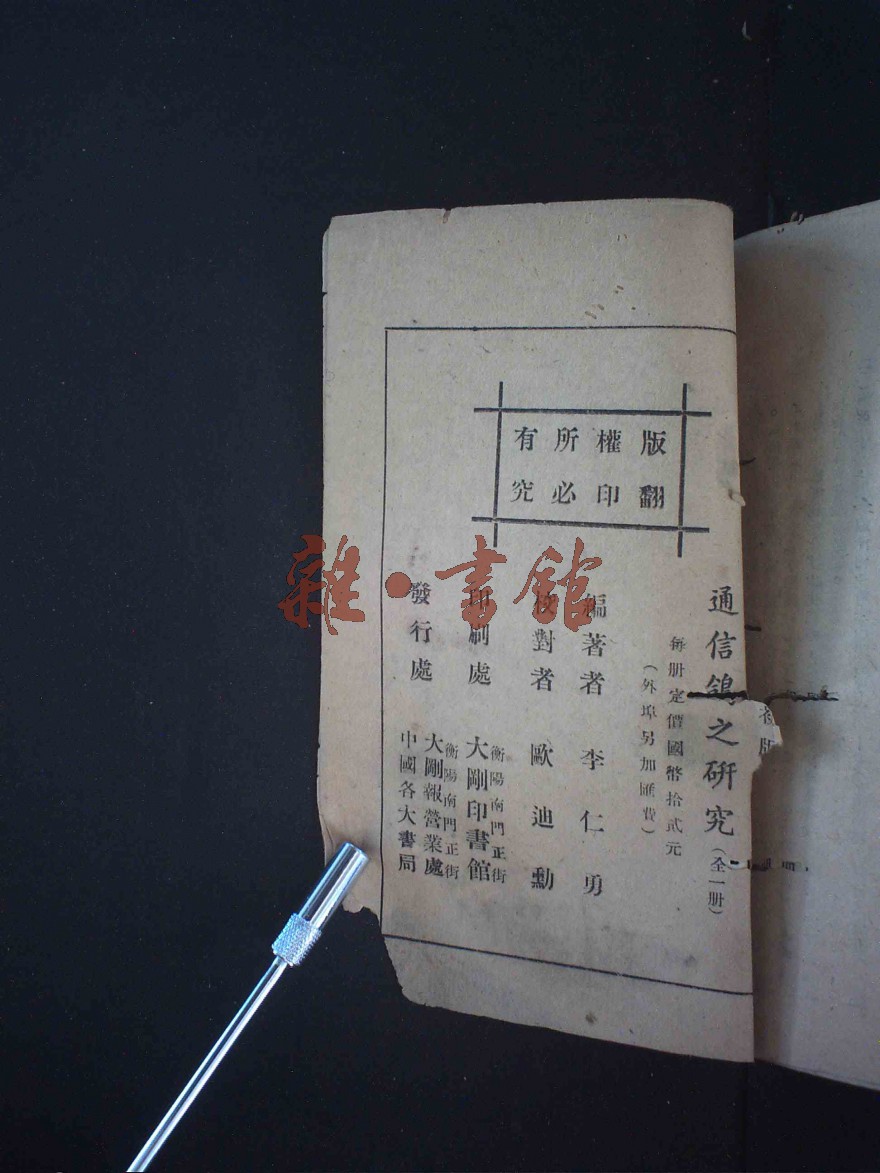 初版
通信鴿之研究(全一册)
每册定價國幣拾貳元
(外埠另加匯費)
版權所有
翻印必究
編著者 李仁勇
校對者 歐迪勳
印刷處 衡陽南門正街
大剛印書館
發行處 衡陽南門正街
大剛報營業處
中國各大書局
雜·書館